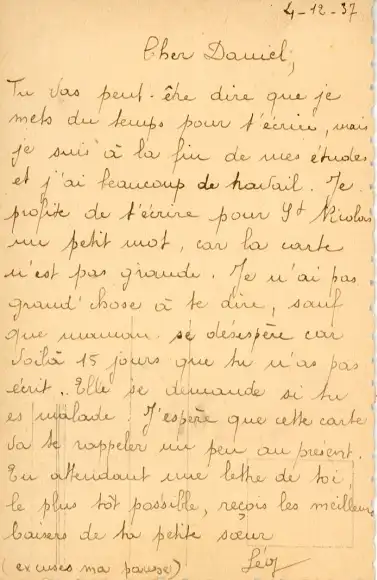 4-12-37
Cher Daniel,
Tu vas peut-être dire que je
mets du temps pour t'écrire, mais
je suis à la fin de mes études
et j'ai beaucoup de travail. Je
profite de t'écrire pour St Nicolas
un petit mot, car la carte
n'est pas grande. Je n'ai pas
grand'chose à te dire, sauf
que maman se désespère car
voilà 15 jours que tu n'as pas
écrit. Elle se demande si tu
es malade! J'espère que cette carte
va te rappeler un peu au présent.
En attendant une lettre de toi,
le plus tôt possible, reçois les meilleurs
baisers de ta petite sœur
(excuses ma pause)